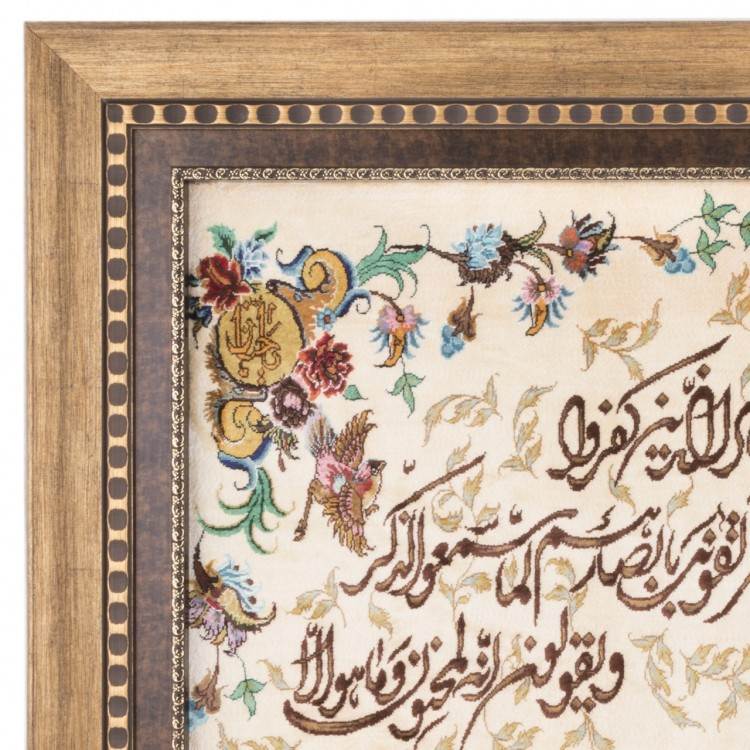 الَّذين كفروا
لقونك بابصارهم لمّا سمعوا الذكر
ويقولون انّه لمجنون وما هو الّا